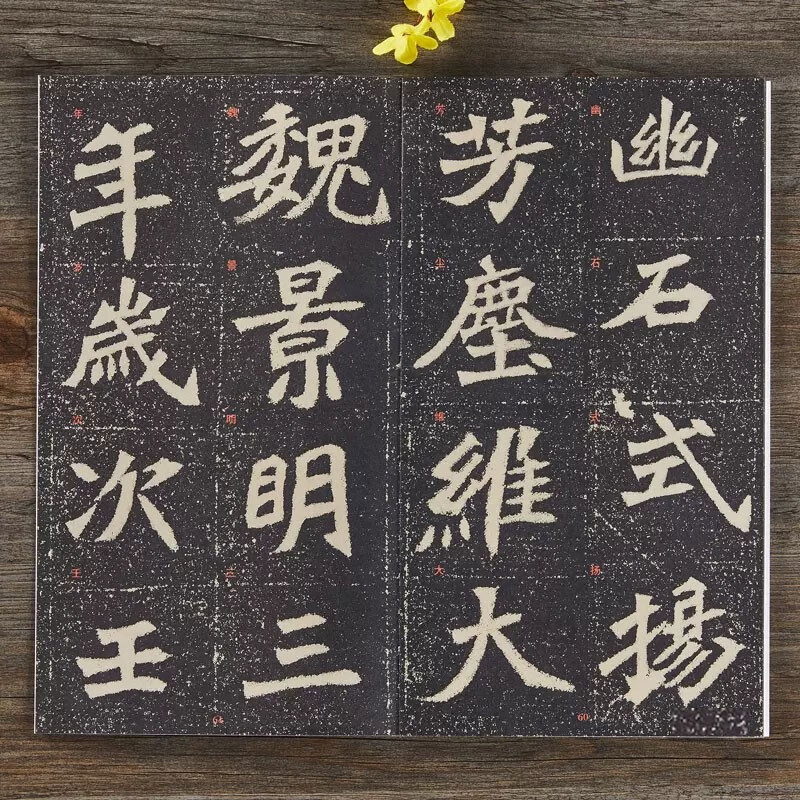 幽石式揚
芳塵維大
魏景明三
年歲次壬
幽 石 式 扬
芳 尘 维 大
魏 景 明 三
年 岁 次 壬
60
61